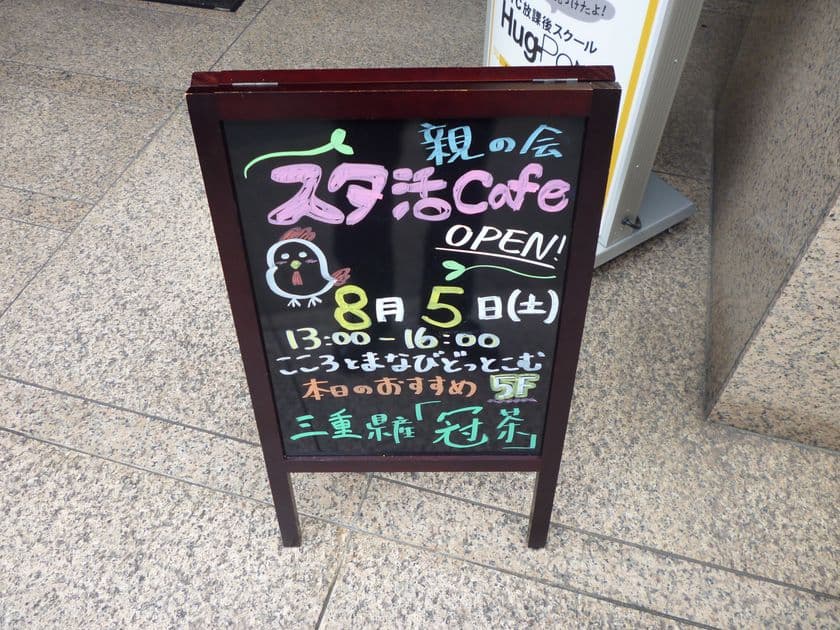 放課後スクール
親の会
スタ活Cafe
OPEN!
8月5日(土)
13:00-16:00
こころとまなびどっとこむ
本日のおすすめ 5F
三重県産「冠茶」